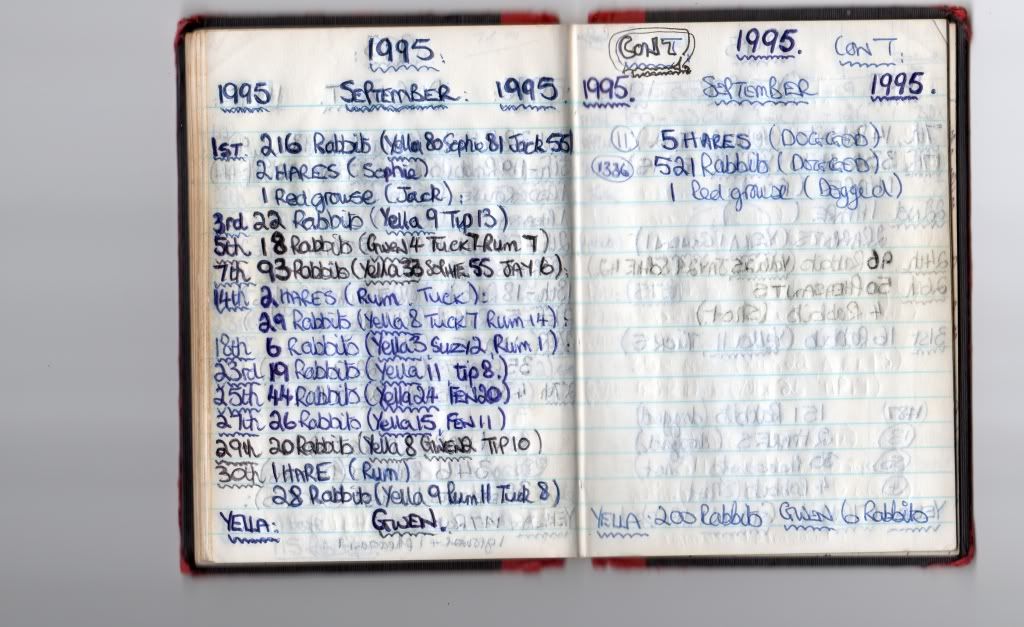 1995.
1995 SEPTEMBER. 1995
1ST 216 Rabbits (Yella 80 Sophie 81 Jack 55)
2 HARES (Sophie)
1 Red grouse (Jack).
3rd 22 Rabbits (Yella 9 Tip 13)
5th 18 Rabbits (Gwen 4 Tuck 7 Rum 7)
7th 93 Rabbits (Yella 33 SOPHIE 55 JAY 6).
14th 2 HARES (Rum. Tuck).
29 Rabbits (Yella 8 Tuck 7 Rum 14).
18th 6 Rabbits (Yella 3 Suzy 2 Rum 1).
23rd 19 Rabbits (Yella 11 Tip 8.)
25th 44 Rabbits (Yella 24 FEN 20)
27th 26 Rabbits (Yella 15, FEN 11)
29th 20 Rabbits (Yella 8 GWEN 2 TIP 10)
30th 1 HARE (Rum)
28 Rabbits (Yella 9 Rum 11 Tuck 8)
YELLA: GWEN.
CONT 1995. CONT.
1995. SEPTEMBER 1995.
(11) 5 HARES (DOGGED)
(1336) 521 Rabbits (DOGGED)
1 Red grouse (Dogged)
YELLA 200 Rabbits GWEN 6 Rabbits